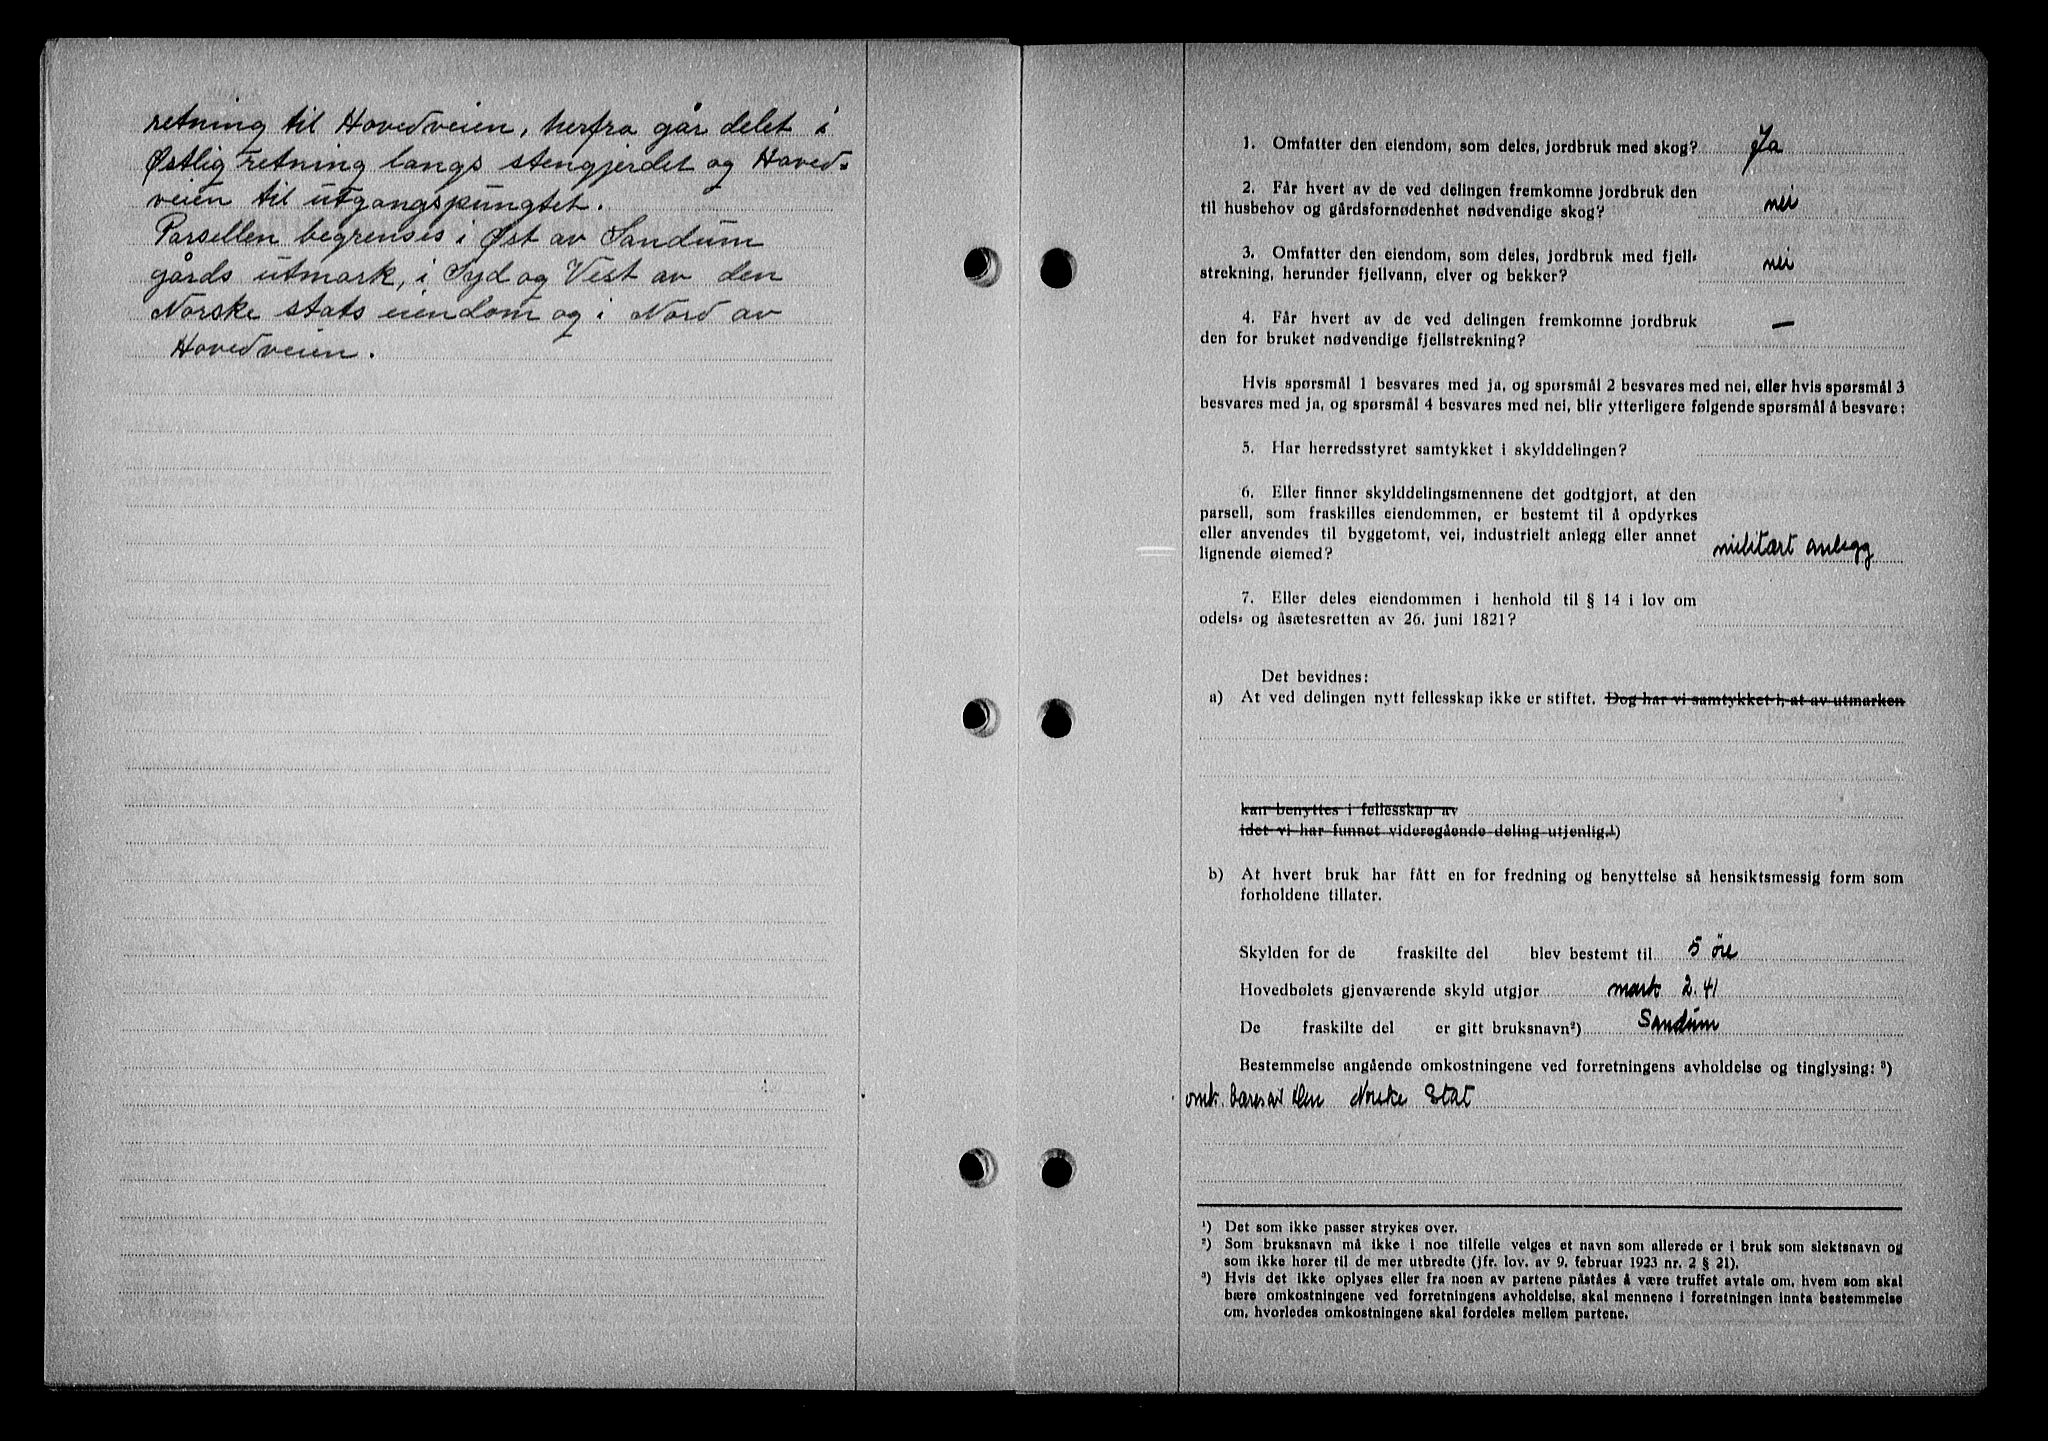 retning til Hovedveien, herfra går delet i
Østlig retning langs stengjerdet og Hoved-
veien til utgangspungtet.
Parsellen begrenses i Øst av Sandum
gårds utmark, i Syd og Vest av den
Norske stats eiendom og i Nord av
Hovedveien.
1. Omfatter den eiendom, som deles, jordbruk med skog? Ja
2. Får hvert av de ved delingen fremkomne jordbruk den
til husbehov og gårdsfornødenhet nødvendige skog? nei
3. Omfatter den eiendom, som deles, jordbruk med fjell-
strekning, herunder fjellvann, elver og bekker? nei
4. Får hvert av de ved delingen fremkomne jordbruk
den for bruket nødvendige fjellstrekning? —
Hvis spørsmål 1 besvares med ja, og spørsmål 2 besvares med nei, eller hvis spørsmål 3
besvares med ja, og spørsmål 4 besvares med nei, blir ytterligere følgende spørsmål å besvare:
5. Har herredsstyret samtykket i skylddelingen?
6. Eller finner skylddelingsmennene det godtgjort, at den
parsell, som fraskilles eiendommen, er bestemt til å opdyrkes
eller anvendes til byggetomt, vei, industrielt anlegg eller annet
lignende øiemed? militært anlegg
7. Eller deles eiendommen i henhold til § 14 i lov om
odels- og åsætesretten av 26. juni 1821?
Det bevidnes:
a) At ved delingen nytt fellesskap ikke er stiftet. Dog har vi samtykket i, at av utmarken
kan benyttes i fellesskap av
idet vi har funnet videregående deling utjenlig.¹)
b) At hvert bruk har fått en for fredning og benyttelse så hensiktsmessig form som
forholdene tillater.
Skylden for de fraskilte del blev bestemt til 5 öre
Hovedbølets gjenværende skyld utgjør mark 2.41
De fraskilte del er gitt bruksnavn²) Sandum
Bestemmelse angående omkostningene ved forretningens avholdelse og tinglysing: ³)
omk. bæres av Den Norske Stat
¹) Det som ikke passer strykes over.
²) Som bruksnavn må ikke i noe tilfelle velges et navn som allerede er i bruk som slektsnavn og
som ikke hører til de mer utbredte (jfr. lov. av 9. februar 1923 nr. 2 § 21).
³) Hvis det ikke oplyses eller fra noen av partene påståes å være truffet avtale om, hvem som skal
bære omkostningene ved forretningens avholdelse, skal mennene i forretningen innta bestemmelse
om, hvorledes omkostningene skal fordeles mellem partene.